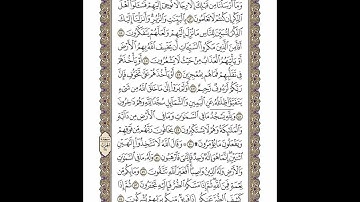 وَمَآ أَرْسَلْنَا مِن قَبْلِكَ إِلَّا رِجَالًا نُّوحِىٓ إِلَيْهِمْ فَسْـَٔلُوٓا۟ أَهْلَ
ٱلذِّكْرِ إِن كُنتُمْ لَا تَعْلَمُونَ ٤٣ بِٱلْبَيِّنَٰتِ وَٱلزُّبُرِ وَأَنزَلْنَآ إِلَيْكَ
ٱلذِّكْرَ لِتُبَيِّنَ لِلنَّاسِ مَا نُزِّلَ إِلَيْهِمْ وَلَعَلَّهُمْ يَتَفَكَّرُونَ ٤٤
أَفَأَمِنَ ٱلَّذِينَ مَكَرُوا۟ ٱلسَّيِّـَٔاتِ أَن يَخْسِفَ ٱللَّهُ بِهِمُ ٱلْأَرْضَ
أَوْ يَأْتِيَهُمُ ٱلْعَذَابُ مِنْ حَيْثُ لَا يَشْعُرُونَ ٤٥ أَوْ يَأْخُذَهُمْ
فِى تَقَلُّبِهِمْ فَمَا هُم بِمُعْجِزِينَ ٤٦ أَوْ يَأْخُذَهُمْ عَلَىٰ تَخَوُّفٍ فَإِنَّ
رَبَّكُمْ لَرَءُوفٌ رَّحِيمٌ ٤٧ أَوَلَمْ يَرَوْا۟ إِلَىٰ مَا خَلَقَ ٱللَّهُ مِن شَىْءٍ
يَتَفَيَّؤُا۟ ظِلَٰلُهُۥ عَنِ ٱلْيَمِينِ وَٱلشَّمَآئِلِ سُجَّدًا لِّلَّهِ وَهُمْ دَٰخِرُونَ ٤٨
وَلِلَّهِ يَسْجُدُ مَا فِى ٱلسَّمَٰوَٰتِ وَمَا فِى ٱلْأَرْضِ مِن دَآبَّةٍ
وَٱلْمَلَٰٓئِكَةُ وَهُمْ لَا يَسْتَكْبِرُونَ ٤٩ يَخَافُونَ رَبَّهُم مِّن فَوْقِهِمْ
وَيَفْعَلُونَ مَا يُؤْمَرُونَ ۩ ٥٠ وَقَالَ ٱللَّهُ لَا تَتَّخِذُوٓا۟ إِلَٰهَيْنِ
ٱثْنَيْنِ إِنَّمَا هُوَ إِلَٰهٌ وَٰحِدٌ فَإِيَّٰىَ فَٱرْهَبُونِ ٥١ وَلَهُۥ مَا فِى ٱلسَّمَٰوَٰتِ
وَٱلْأَرْضِ وَلَهُ ٱلدِّينُ وَاصِبًا أَفَغَيْرَ ٱللَّهِ تَتَّقُونَ ٥٢ وَمَا بِكُم مِّن
نِّعْمَةٍ فَمِنَ ٱللَّهِ ثُمَّ إِذَا مَسَّكُمُ ٱلضُّرُّ فَإِلَيْهِ تَجْـَٔرُونَ ٥٣ ثُمَّ إِذَا
كَشَفَ ٱلضُّرَّ عَنكُمْ إِذَا فَرِيقٌ مِّنكُم بِرَبِّهِمْ يُشْرِكُونَ ٥٤